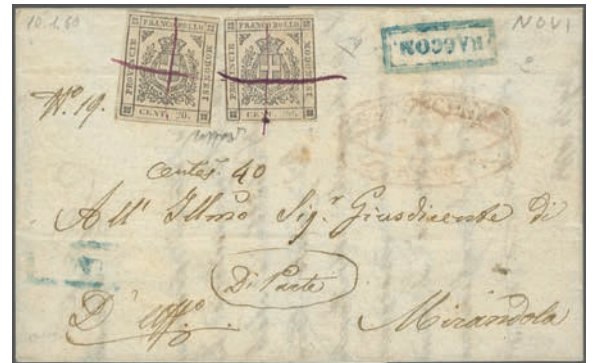 10.1.60
NOVI
FRANCO BOLLO
PROVINCIE
MODONESI
CENT. 20.
FRANCO BOLLO
PROVINCIE
MODONESI
CENT. 20.
RACCOM.
N.o 19.
Centes. 40
All' Illmo Sig.r Giusdicente di
Di Parte
D' uffo
Mirandola